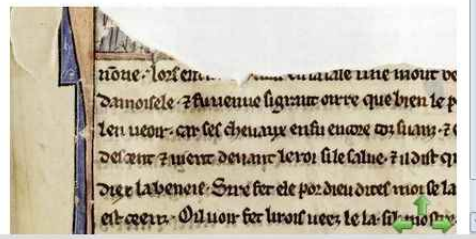 none. lors en en la sale une mout be
damoisele. ⁊ fu uenue si grant oirre que bien le p
len ueoir. car ses cheuaux en fu encore toz suanz. ⁊ e
descent ⁊ uient deuant le roi si le salue. ⁊ il dist q
diex la beneie. Sire fet ele por dieu dites moi se la
est ceenz. Oil uoir fet li rois ueez le la. si li mostre